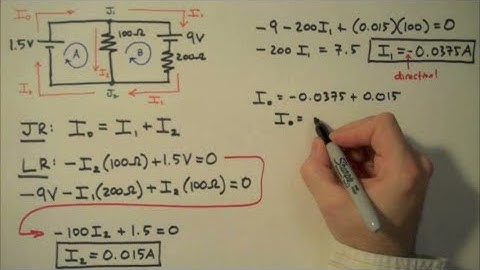 I₀
J₁
I₁
1.5V
A
100Ω
B
9V
200Ω
I₂
I₀
J₂
I₁
JR: I₀ = I₁ + I₂
LR: -I₂(100Ω) + 1.5V = 0
-9V - I₁(200Ω) + I₂(100Ω) = 0
-100I₂ + 1.5 = 0
I₂ = 0.015A
-9 - 200I₁ + (0.015)(100) = 0
-200I₁ = 7.5 I₁ = -0.0375A
direction!
I₀ = -0.0375 + 0.015
I₀ =
Sharpie